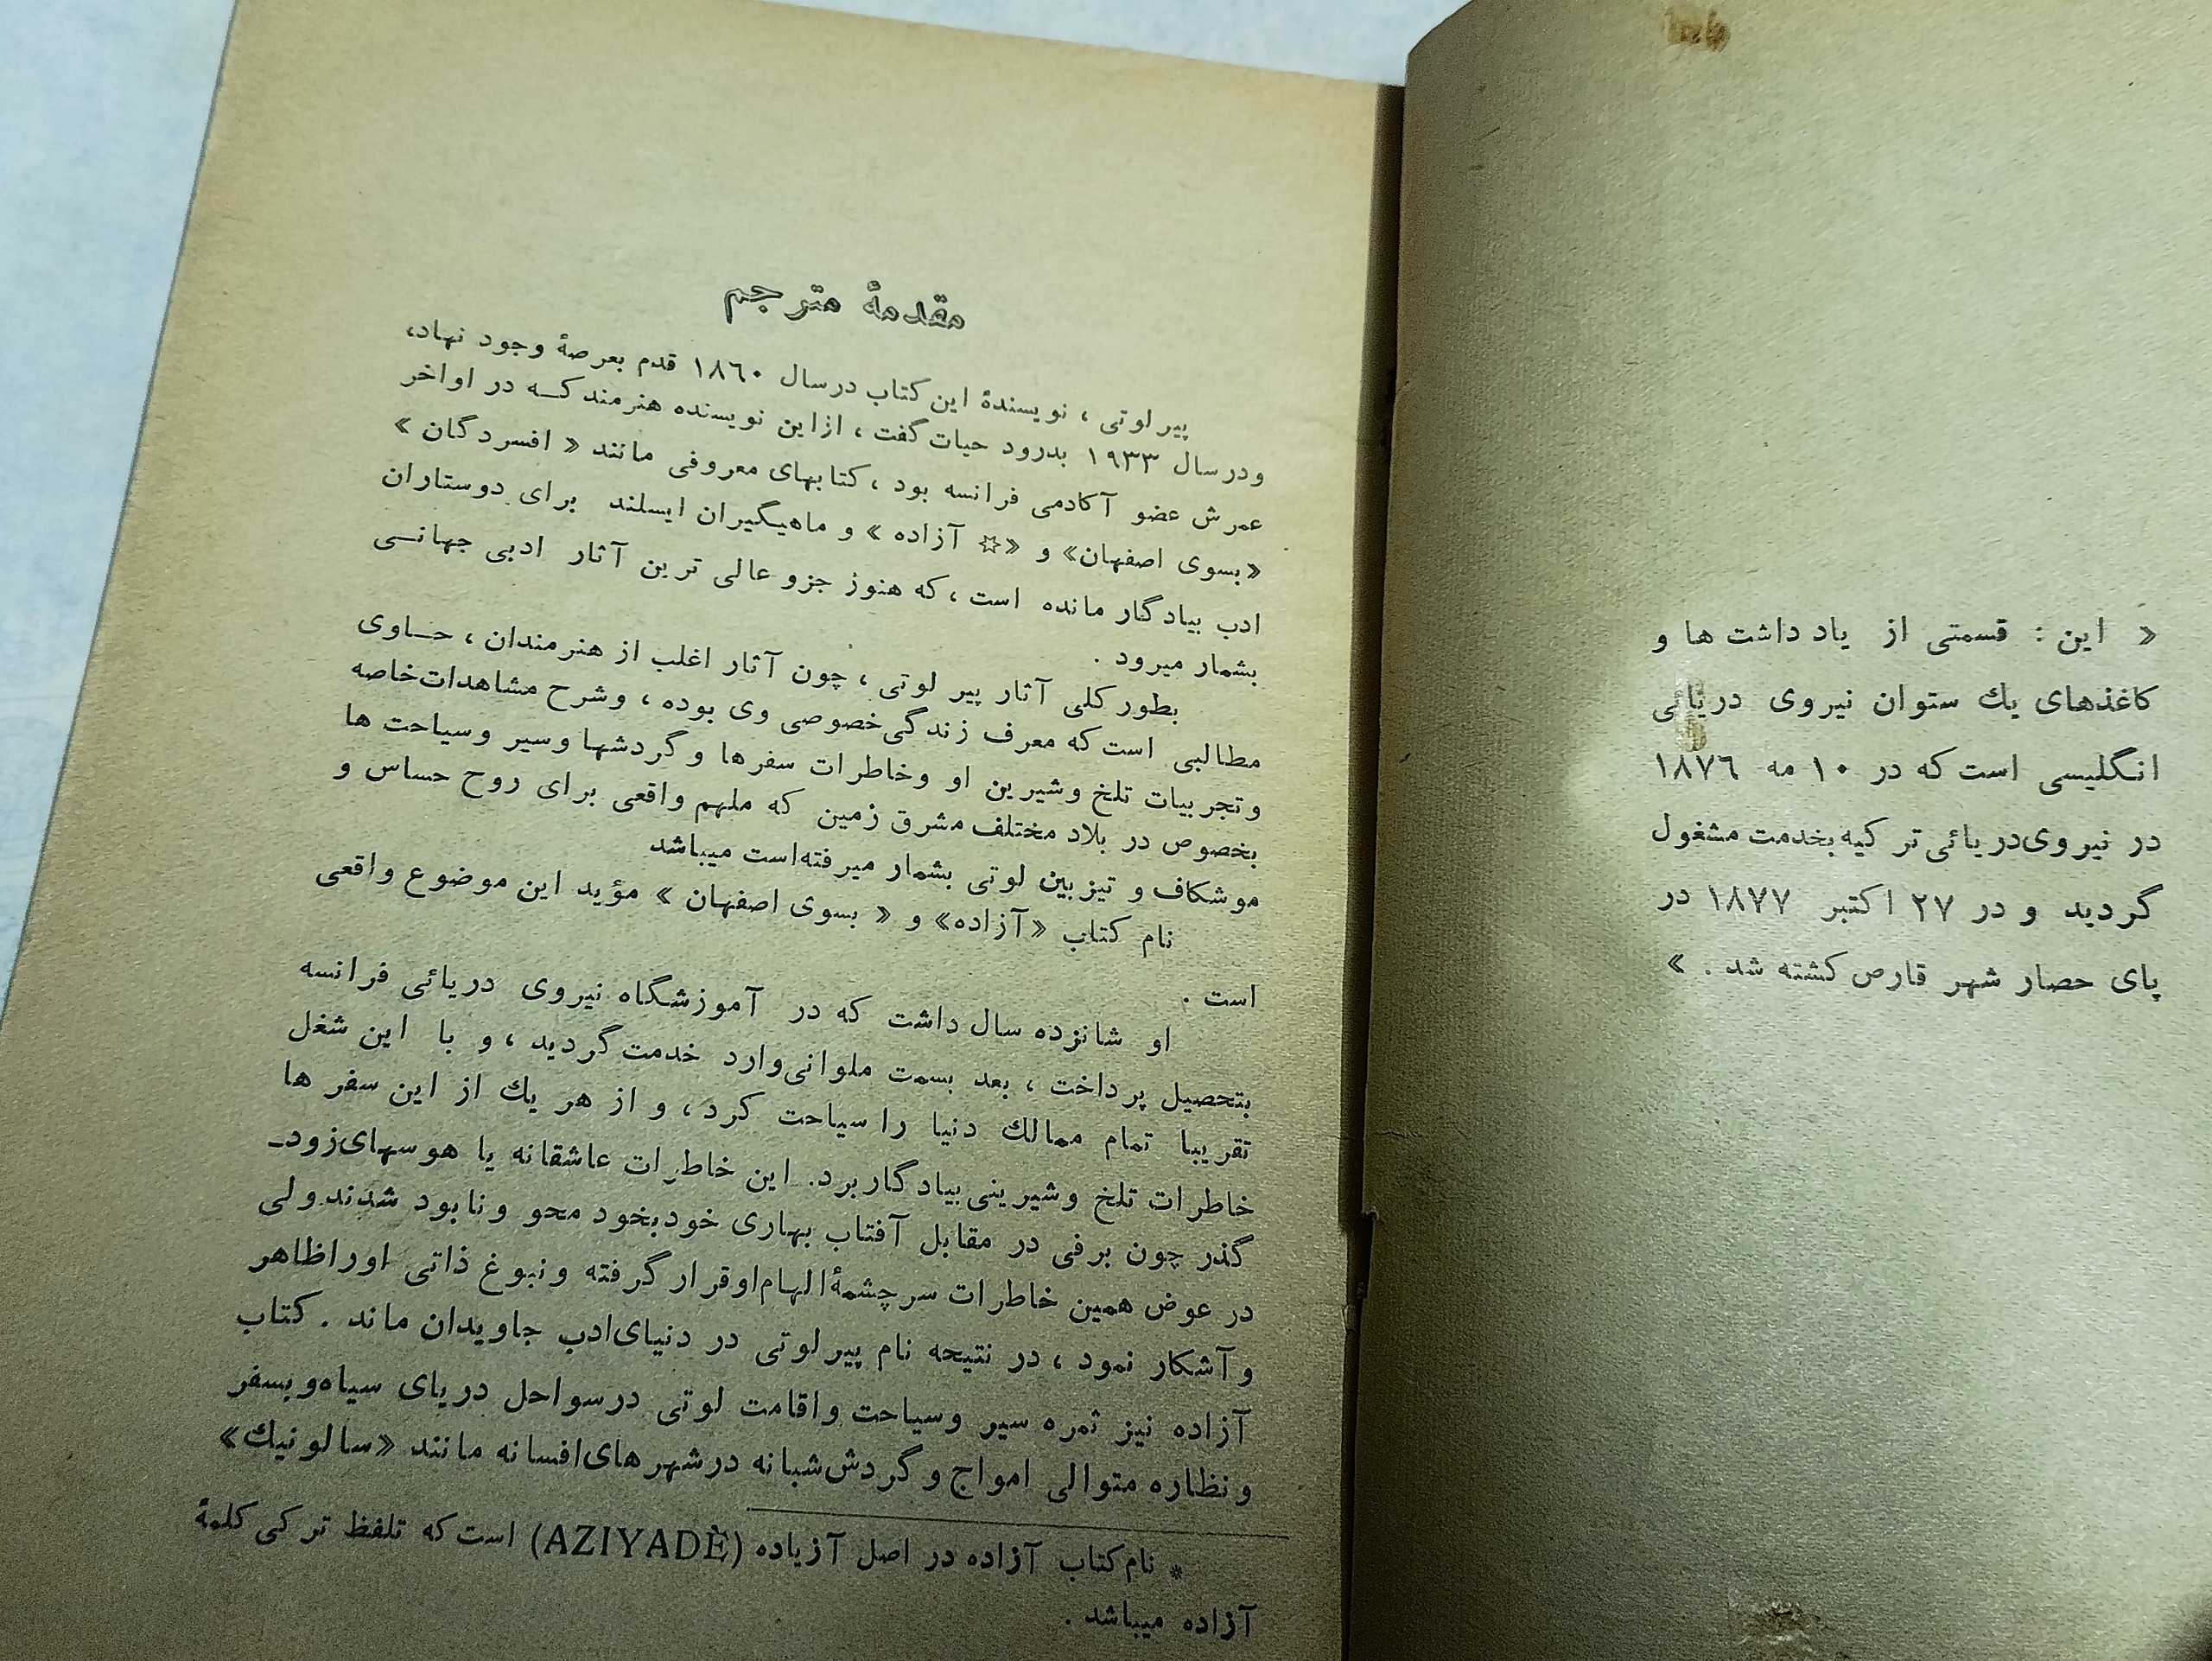 « این : قسمتی از یاد داشت ها و
کاغذهای یك ستوان نیروی دریائی
انگلیسی است که در ۱۰ مه ۱۸۷٦
در نیروی‌دریائی ترکیه بخدمت مشغول
گردید و در ۲۷ اکتبر ۱۸۷۷ در
پای حصار شهر قارص کشته شد . »
مقدمهٔ مترجم
پیر لوتی ، نویسندهٔ این کتاب درسال ۱۸٦۰ قدم بعرصهٔ وجود نهاد،
ودرسال ۱۹۳۳ بدرود حیات گفت ، ازاین نویسنده هنرمند کـه در اواخر
عمرش عضو آکادمی فرانسه بود ، کتابهای معروفی مانند « افسردگان »
«بسوی اصفهان» و «☆ آزاده » و ماهیگیران ایسلند برای دوستاران
ادب بیادگار مانده است ، که هنوز جزو عالی ترین آثار ادبی جهانـی
بشمار میرود .
بطورکلی آثار پیر لوتی ، چون آثار اغلب از هنرمندان ، حـاوی
مطالبی است که معرف زندگی خصوصی وی بوده ، وشرح مشاهدات خاصه
وتجربیات تلخ وشیرین او وخاطرات سفرها و گردشها وسیر وسیاحت ها
بخصوص در بلاد مختلف مشرق زمین که ملهم واقعی برای روح حساس و
موشکاف و تیزبین لوتی بشمار میرفته‌است میباشد
نام کتاب «آزاده» و « بسوی اصفهان » مؤید این موضوع واقعی
است .
او شانزده سال داشت که در آموزشگاه نیروی دریائی فرانسه
بتحصیل پرداخت ، بعد بسمت ملوانی‌وارد خدمت گردید ، و با این شغل
تقریبا تمام ممالك دنیا را سیاحت کرد ، و از هر یك از این سفر ها
خاطرات تلخ وشیرینی بیادگار برد. این خاطرات عاشقانه یا هوسهای‌زود-
گذر چون برفی در مقابل آفتاب بهاری خودبخود محو ونابود شدندولی
در عوض همین خاطرات سرچشمهٔ‌الهام‌اوقرار گرفته ونبوغ ذاتی اوراظاهر
وآشکار نمود ، در نتیجه نام پیر لوتی در دنیای‌ادب جاویدان ماند . کتاب
آزاده نیز ثمره سیر وسیاحت واقامت لوتی درسواحل دریای سیاه‌وبسفر
ونظاره متوالی امواج و گردش‌شبانه درشهر های‌افسانه مانند «سالونیك»
* نام‌کتاب آزاده در اصل آزیاده (AZIYADÈ) است که تلفظ ترکی کلمهٔ
آزاده میباشد .